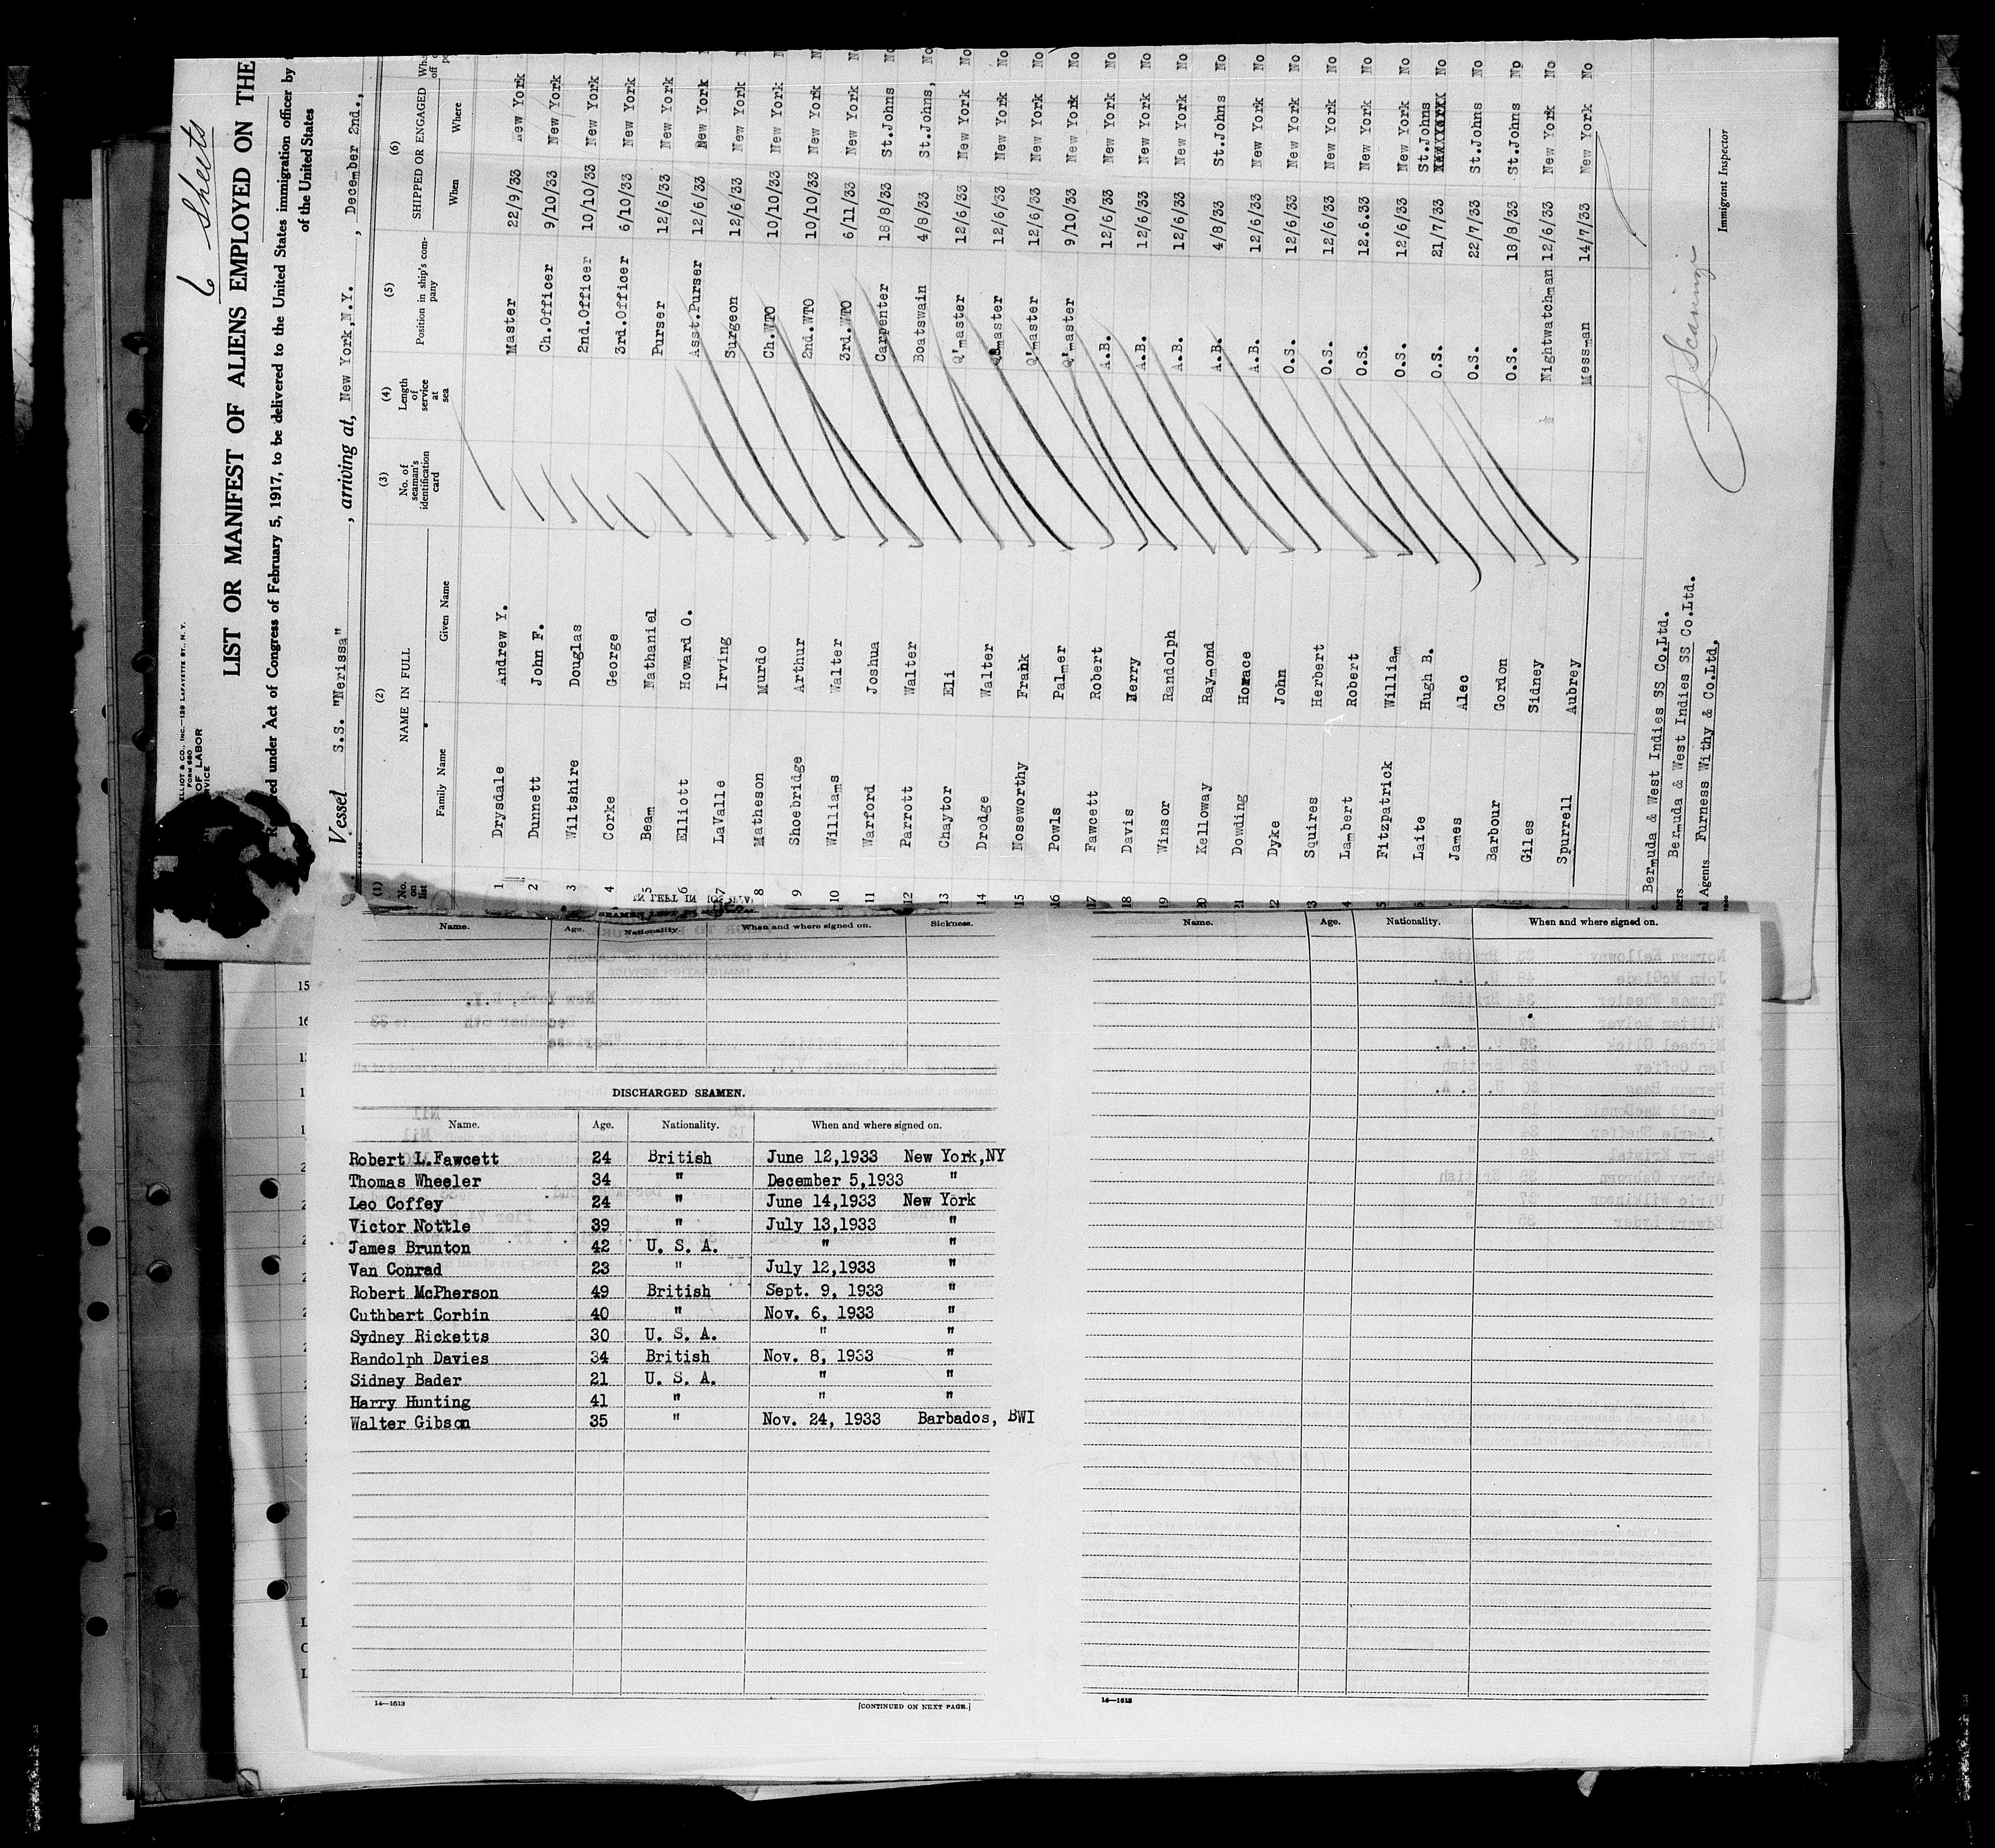 6 Sheets
ELLIOT & CO., INC.—129 LAFAYETTE ST., N. Y.
FORM 680
OF LABOR
LIST OR MANIFEST OF ALIENS EMPLOYED ON THE
red under Act of Congress of February 5, 1917, to be delivered to the United States immigration officer by
of the United States
Vessel S.S. "Nerissa", arriving at, New York, N.Y., December 2nd.,
(1) (2) (3) (4) (5) (6)
No. on list NAME IN FULL No. of seaman's identification card Length of service at sea Position in ship's company SHIPPED OR ENGAGED
Family Name Given Name When Where
1 Drysdale Andrew Y. Master 22/9/33 New York
2 Dunnett John F. Ch.Officer 9/10/33 New York
3 Wiltshire Douglas 2nd.Officer 10/10/33 New York
4 Corke George 3rd.Officer 6/10/33 New York
5 Beam Nathaniel Purser 12/6/33 New York
6 Elliott Howard O. Asst.Purser 12/6/33 New York
7 LaValle Irving Surgeon 12/6/33 New York
8 Matheson Murdo Ch.WTO 10/10/33 New York
9 Shoebridge Arthur 2nd.WTO 10/10/33 New York
10 Williams Walter 3rd.WTO 6/11/33 New York
11 Warford Joshua Carpenter 18/8/33 St.Johns No
12 Parrott Walter Boatswain 4/8/33 St.Johns, No
13 Chaytor Eli Q'master 12/6/33 New York No
14 Drodge Walter Q'master 12/6/33 New York No
15 Noseworthy Frank Q'master 12/6/33 New York No
16 Powls Palmer Q'master 9/10/33 New York No
17 Fawcett Robert A.B. 12/6/33 New York No
18 Davis Herry A.B. 12/6/33 New York No
19 Winsor Randolph A.B. 12/6/33 New York No
20 Kelloway Raymond A.B. 4/8/33 St.Johns No
21 Dowding Horace A.B. 12/6/33 New York No
2 Dyke John O.S. 12/6/33 New York No
3 Squires Herbert O.S. 12/6/33 New York No
4 Lambert Robert O.S. 12.6.33 New York No
5 Fitzpatrick William O.S. 12/6/33 New York No
6 Laite Hugh B. O.S. 21/7/33 St.Johns No
James Alec O.S. 22/7/33 St.Johns No
Barbour Gordon O.S. 18/8/33 St.Johns No
Giles Sidney Nightwatchman 12/6/33 New York No
Spurrell Aubrey Messman 14/7/33 New York No
Bermuda & West Indies SS Co.Ltd.
Bermuda & West Indies SS Co.Ltd.
Agents Furness Withy & Co.Ltd.
Immigrant Inspector
Name. Age. Nationality. When and where signed on. Sickness.
DISCHARGED SEAMEN.
Name. Age. Nationality. When and where signed on.
Robert L.Fawcett 24 British June 12,1933 New York,NY
Thomas Wheeler 34 " December 5,1933 "
Leo Coffey 24 " June 14,1933 New York
Victor Nottle 39 " July 13,1933 "
James Brunton 42 U. S. A. " "
Van Conrad 23 " July 12,1933 "
Robert McPherson 49 British Sept. 9, 1933 "
Cuthbert Corbin 40 " Nov. 6, 1933 "
Sydney Ricketts 30 U. S. A. " "
Randolph Davies 34 British Nov. 8, 1933 "
Sidney Bader 21 U. S. A. " "
Harry Hunting 41 " " "
Walter Gibson 35 " Nov. 24, 1933 Barbados, BWI
14—1613
[CONTINUED ON NEXT PAGE.]
Name. Age. Nationality. When and where signed on.
14—1613